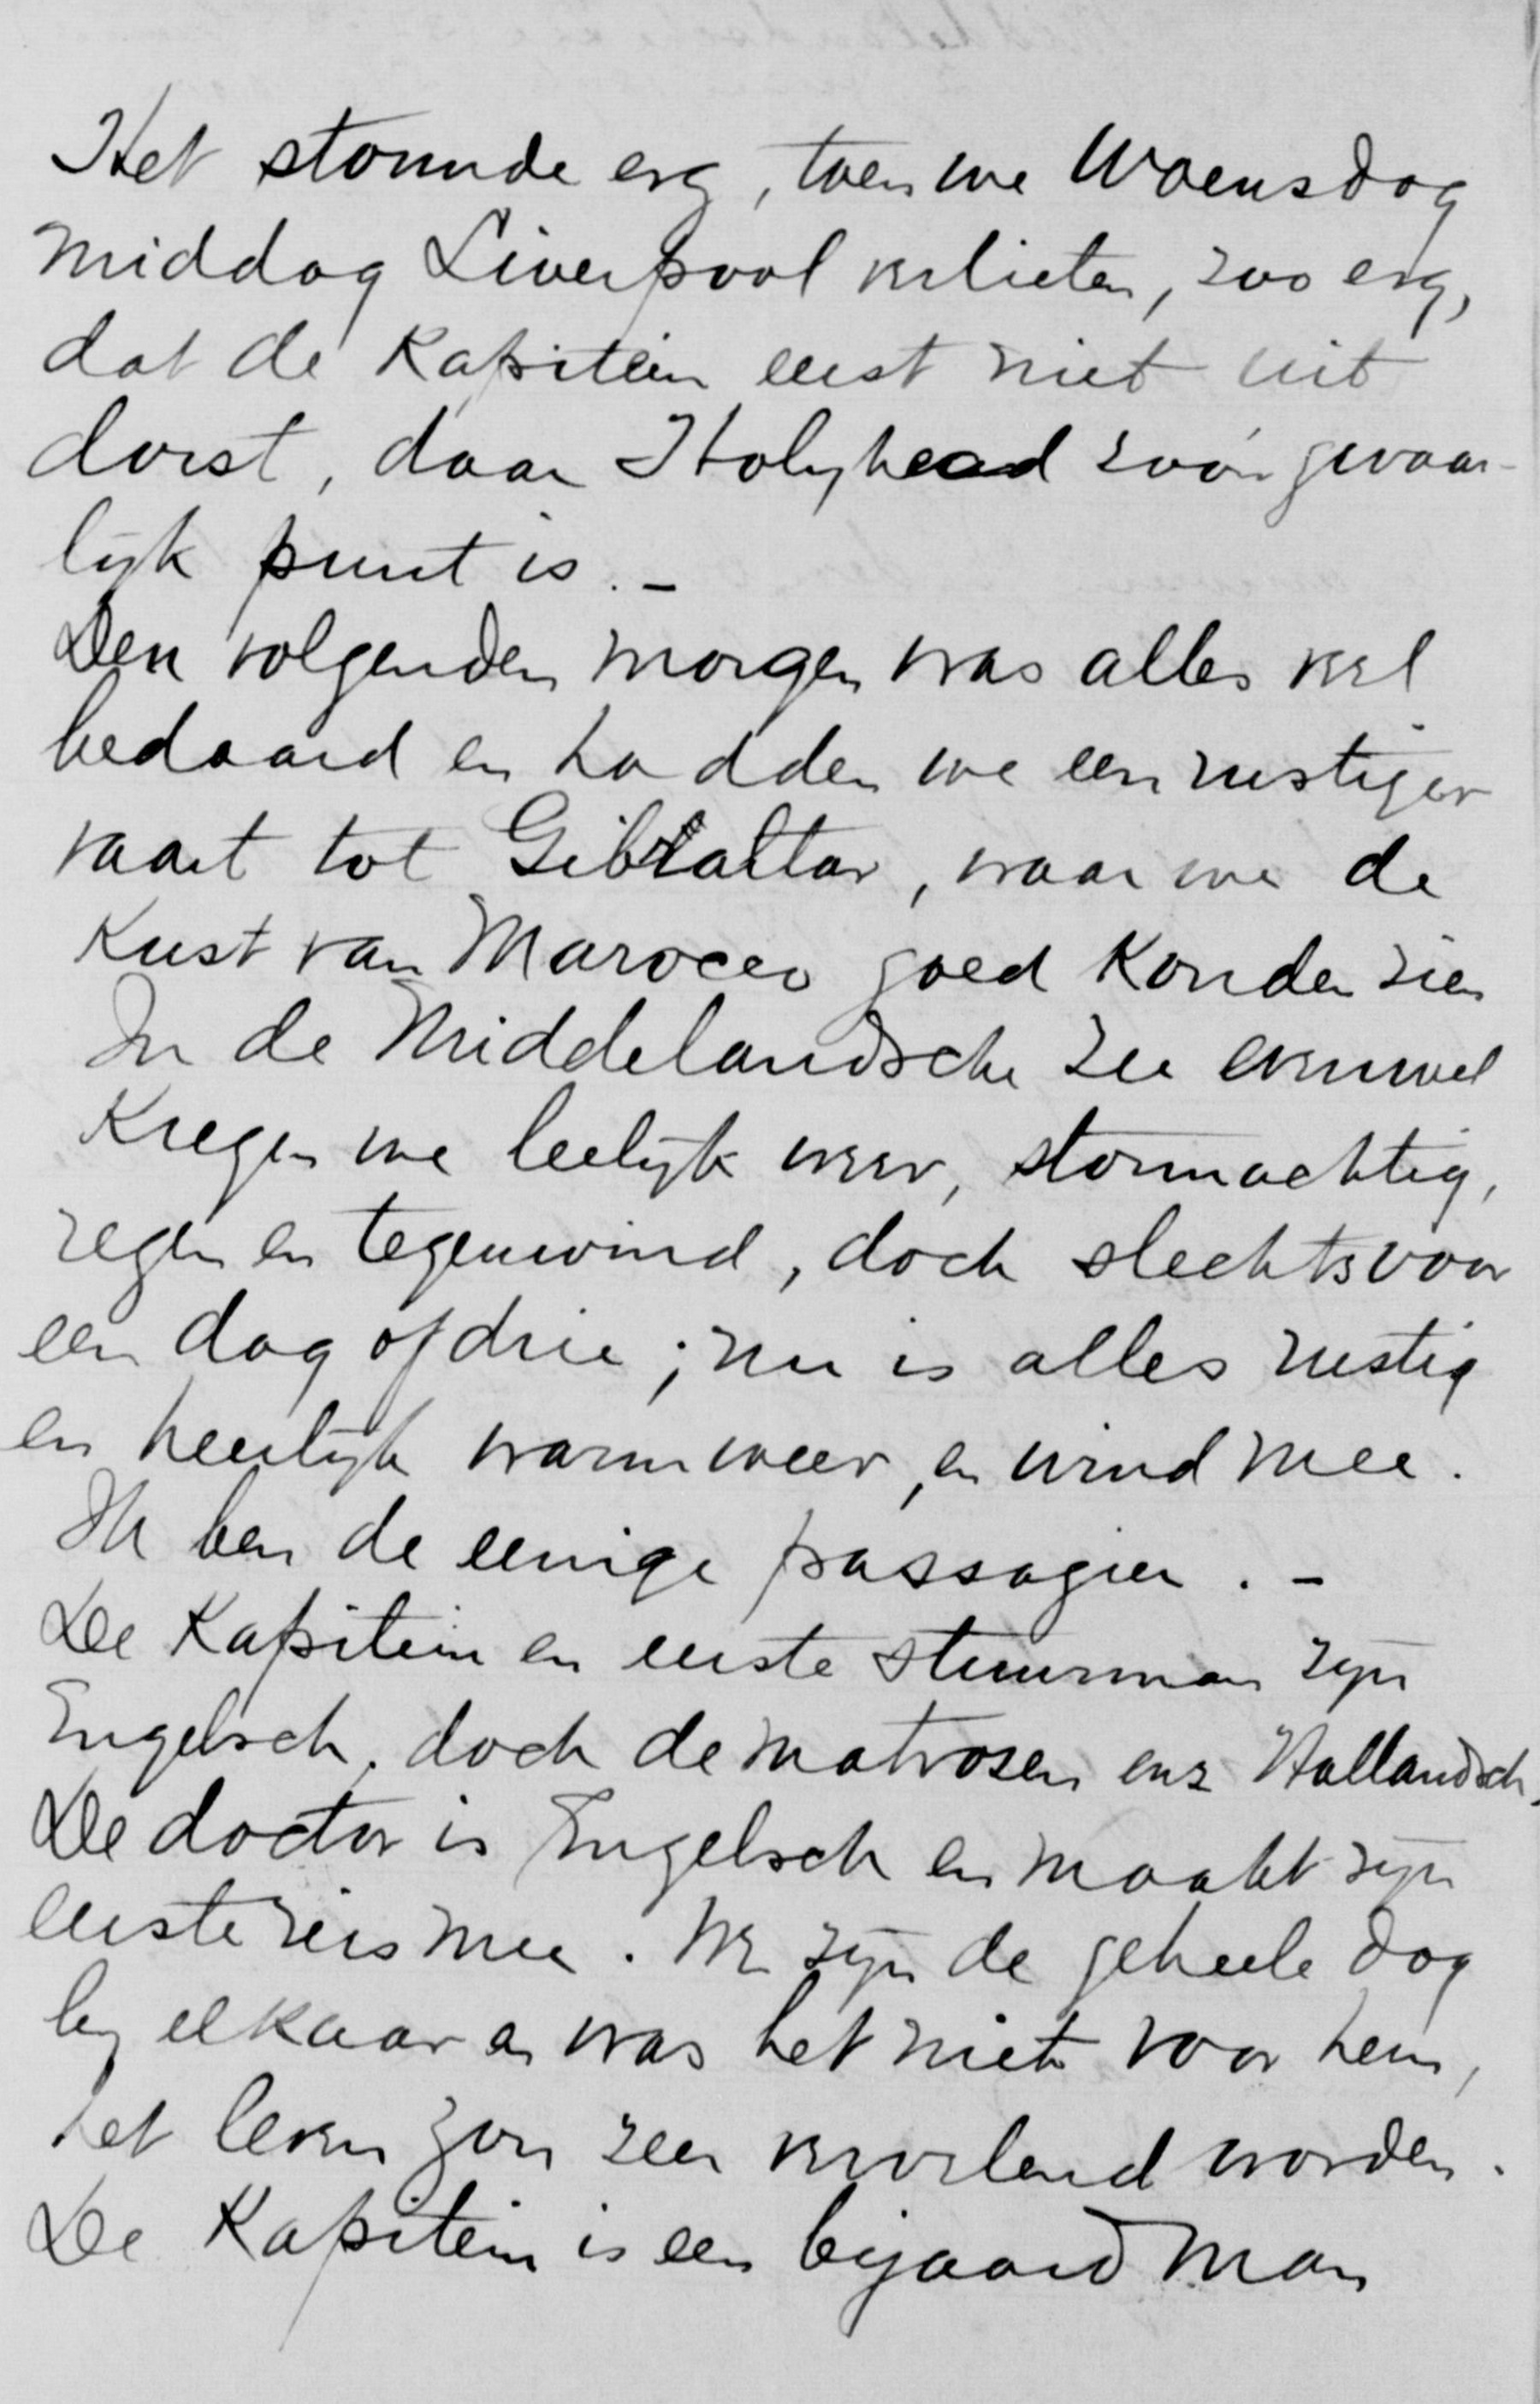 Het stormde erg, toen we Woensdag
middag Liverpool verlieten, zoo erg,
dat de Kapitein eerst niet uit
dorst, daar Holyhead zoo'n gevaar-
lijk punt is. -
Den volgenden morgen was alles veel
bedaard en hadden we een rustigen
vaart tot Gibraltar, waar we de
Kust van Marocco goed Konden zien
In de Middelandsche zee evenwel
Kregen we leelijk weer, stormachtig,
regen en tegenwind, doch slechts voor
een dag of drie; nu is alles rustig
en heerlijk warm weer, en wind mee.
Ik ben de eenige passagier. -
De Kapitein en eerste stuurman zijn
Engelsch, doch de matrosen enz Hollandsch.
De doctor is Engelsch en maakt zijn
eerste reis mee. We zijn de geheele dag
bij elkaar en was het niet voor hem,
het leven zou zeer vervelend worden.
De Kapitein is een bejaard man